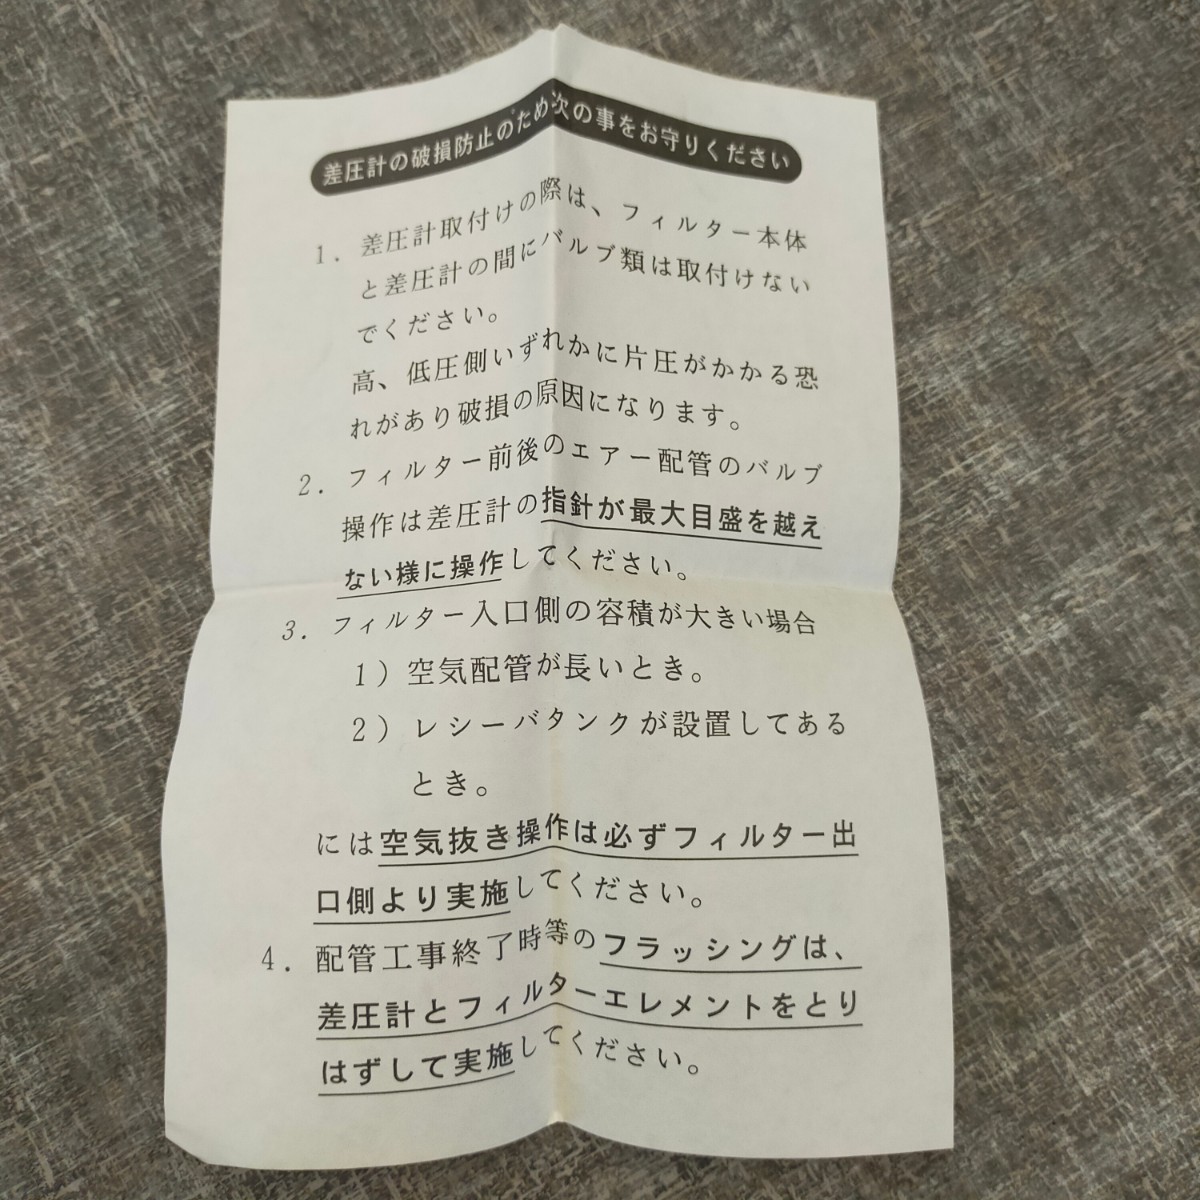 差圧計の破損防止のため次の事をお守りください
1．差圧計取付けの際は、フィルター本体
と差圧計の間にバルブ類は取付けない
でください。
高、低圧側いずれかに片圧がかかる恐
れがあり破損の原因になります。
2．フィルター前後のエアー配管のバルブ
操作は差圧計の指針が最大目盛を越え
ない様に操作してください。
3．フィルター入口側の容積が大きい場合
1）空気配管が長いとき。
2）レシーバタンクが設置してある
とき。
には空気抜き操作は必ずフィルター出
口側より実施してください。
4．配管工事終了時等のフラッシングは、
差圧計とフィルターエレメントをとり
はずして実施してください。